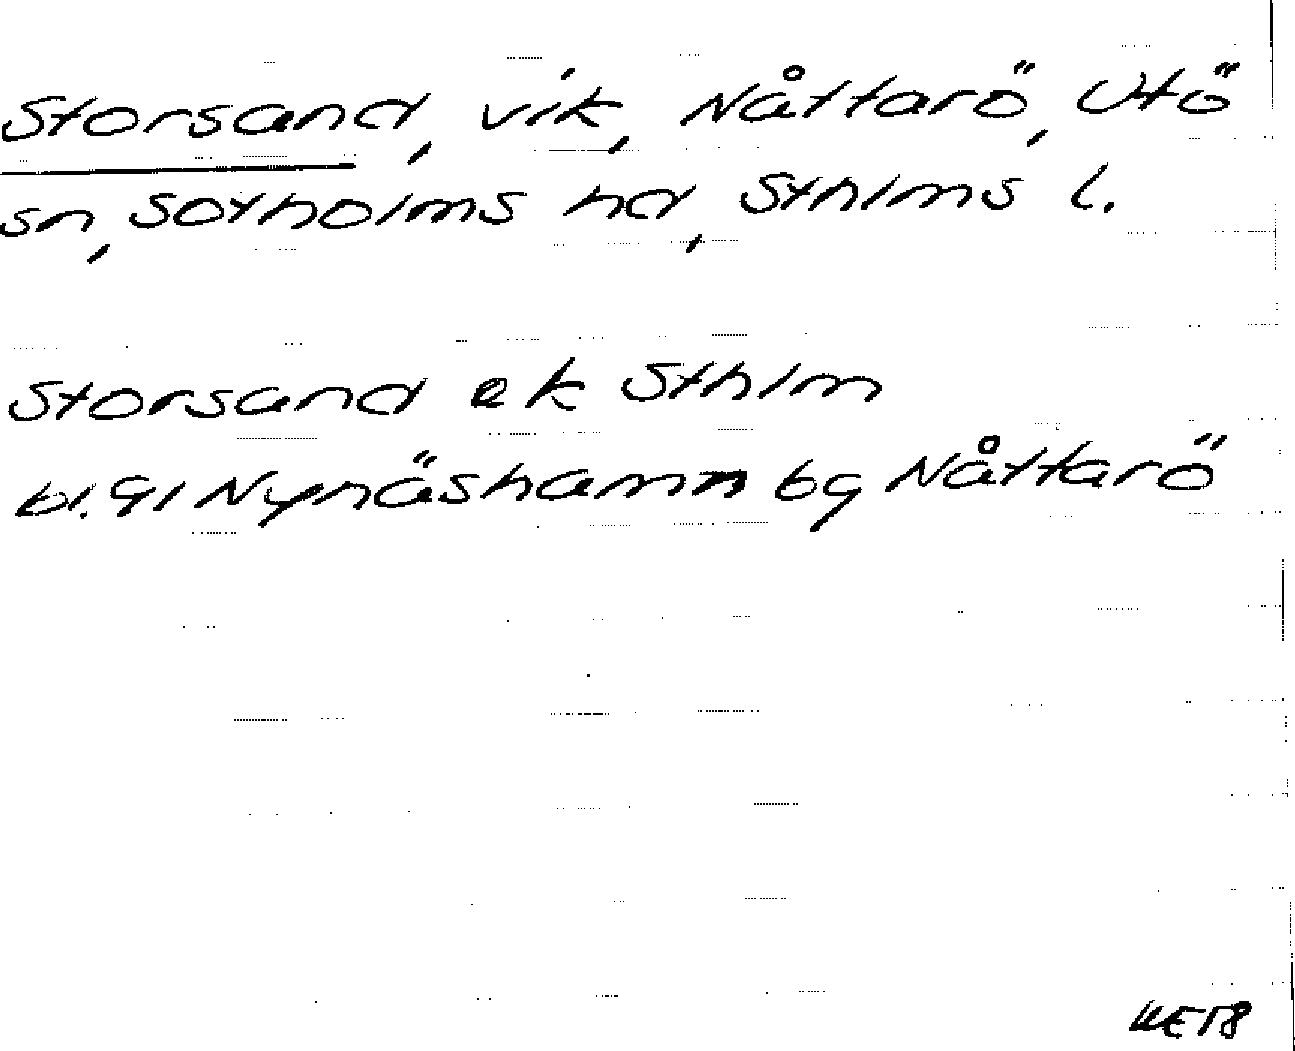 Storsand, vik, Nåttarö, Utö
sn, Sotholms hd, Sthlms l.
Storsand ek Sthlm
bl. 91 Nynäshamn bg Nåttarö